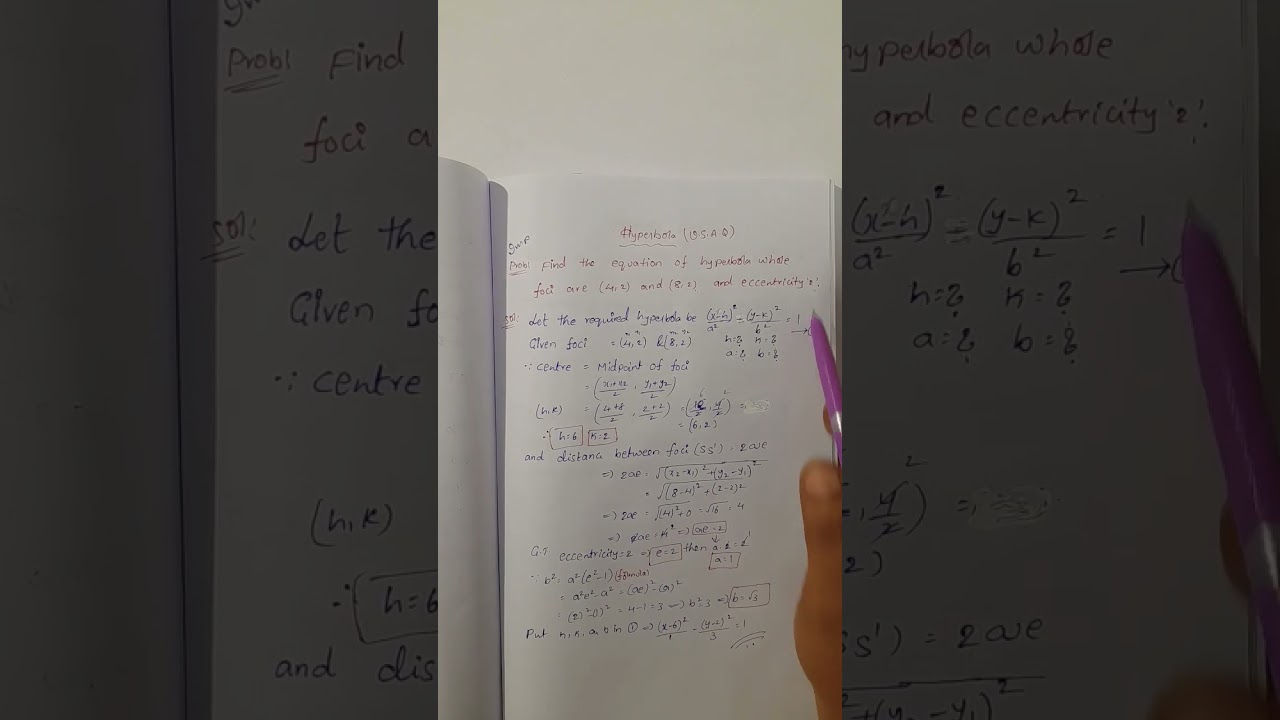 Hyperbola (V.S.A.Q)
Imp
Prob1 Find the equation of hyperbola whole
foci are (4,2) and (8,2) and eccentricity '2'.
Sol: Let the required hyperbola be (x-h)²/a² - (y-k)²/b² = 1
Given foci = (4,2) & (8,2) h=? k=?
a=? b=?
∵ centre = Midpoint of foci
= (x₁+x₂/2 , y₁+y₂/2)
(h,k) = (4+8/2 , 2+2/2) = (12/2, 4/2) =
= (6,2)
∴ h=6 k=2
and distance between foci (SS') = 2ae
=> 2ae = √(x₂-x₁)²+(y₂-y₁)²
= √(8-4)²+(2-2)²
=> 2ae = √(4)²+0 = √16 = 4
=> 2ae = 4 => ae=2
G.T eccentricity=2 => e=2 then a·2=2
a=1
∵ b² = a²(e²-1) (formula)
= a²e²-a² = (ae)²-(a)²
= (2)²-(1)² = 4-1=3 => b²=3 => b=√3
Put h,k,a,b in ① => (x-6)²/1 - (y-2)²/3 = 1